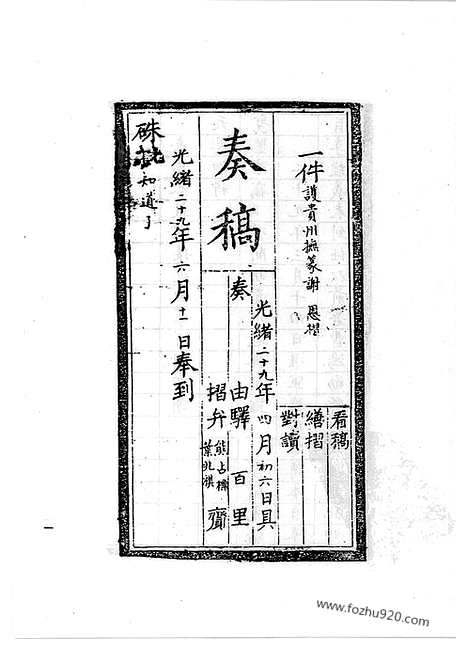 一件護貴州撫篆謝 恩摺
看稿
繕摺
對讀
奏稿
光緒二十九年四月初六日具
奏
由驛 百里
摺弁 齎
光緒二十九年六月十一日奉到
硃批知道了
www.fozhu920.com